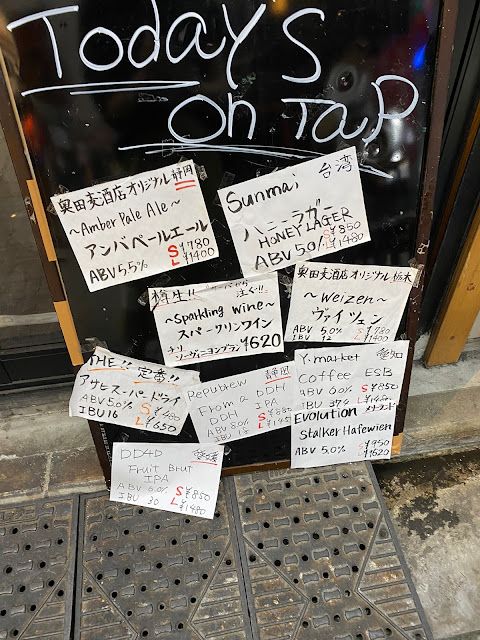 Today's
on Tap
奥田麦酒店オリジナル 静岡
~Amber Pale Ale~
アンバペールエール
ABV 5.5% S ¥780
L ¥1400
Sunmai 台湾
ハニーラガー
HONEY LAGER
ABV 5.0% S ¥850
L ¥1480
樽生!!
注ぐ!!
~Sparkling wine~
スパークリンワイン
チリ
ソーヴィニヨンブラン ¥620
奥田麦酒店 オリジナル 栃木
~Weizen~
ヴァイツェン
ABV 5.0% S ¥780
IBU 12 L ¥1400
THE!! 定番!!
アサヒスーパードライ
ABV 5.0% S
IBU 16 L ¥650
静岡
From a DDH
DDH IPA
ABV 8.0% S ¥880
IBU
Y.market 愛知
Coffee ESB
ABV S ¥850
IBU
Evolution
Stalker Hafewien
ABV 5.0% S ¥950
L ¥1620
DD4D 愛媛
Fruit Brut
IPA
ABV 6.0% S ¥850
IBU 30 L ¥1480